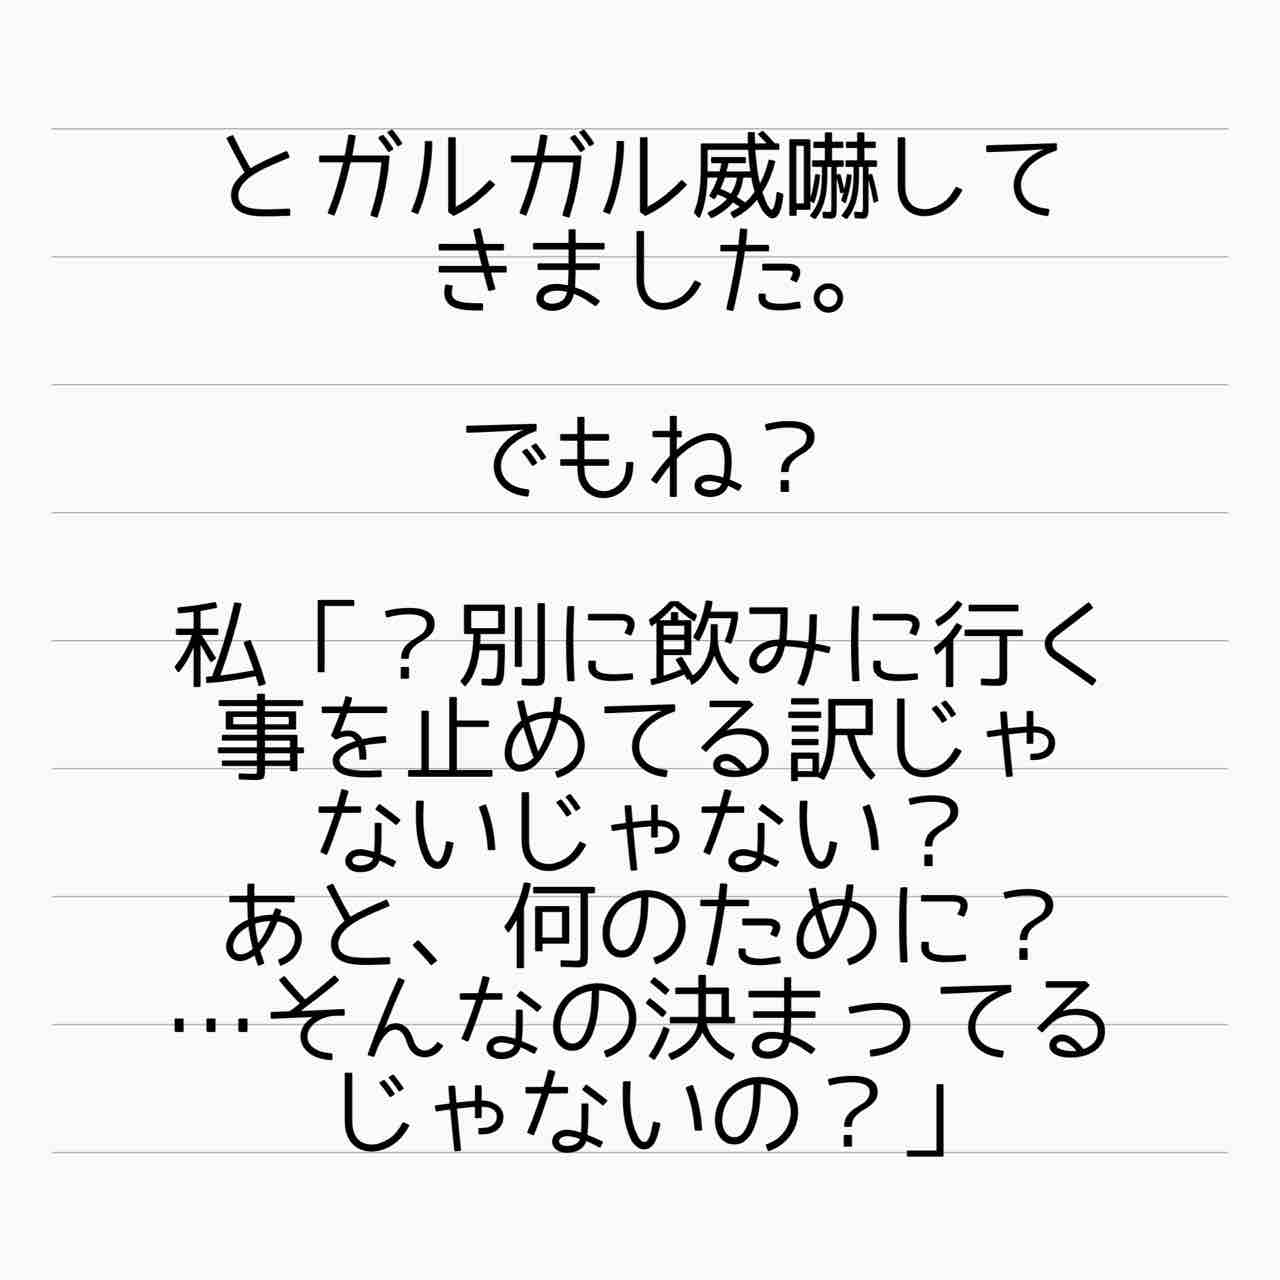 とガルガル威嚇して
きました。
でもね？
私「？別に飲みに行く
事を止めてる訳じゃ
ないじゃない？
あと、何のために？
…そんなの決まってる
じゃないの？」